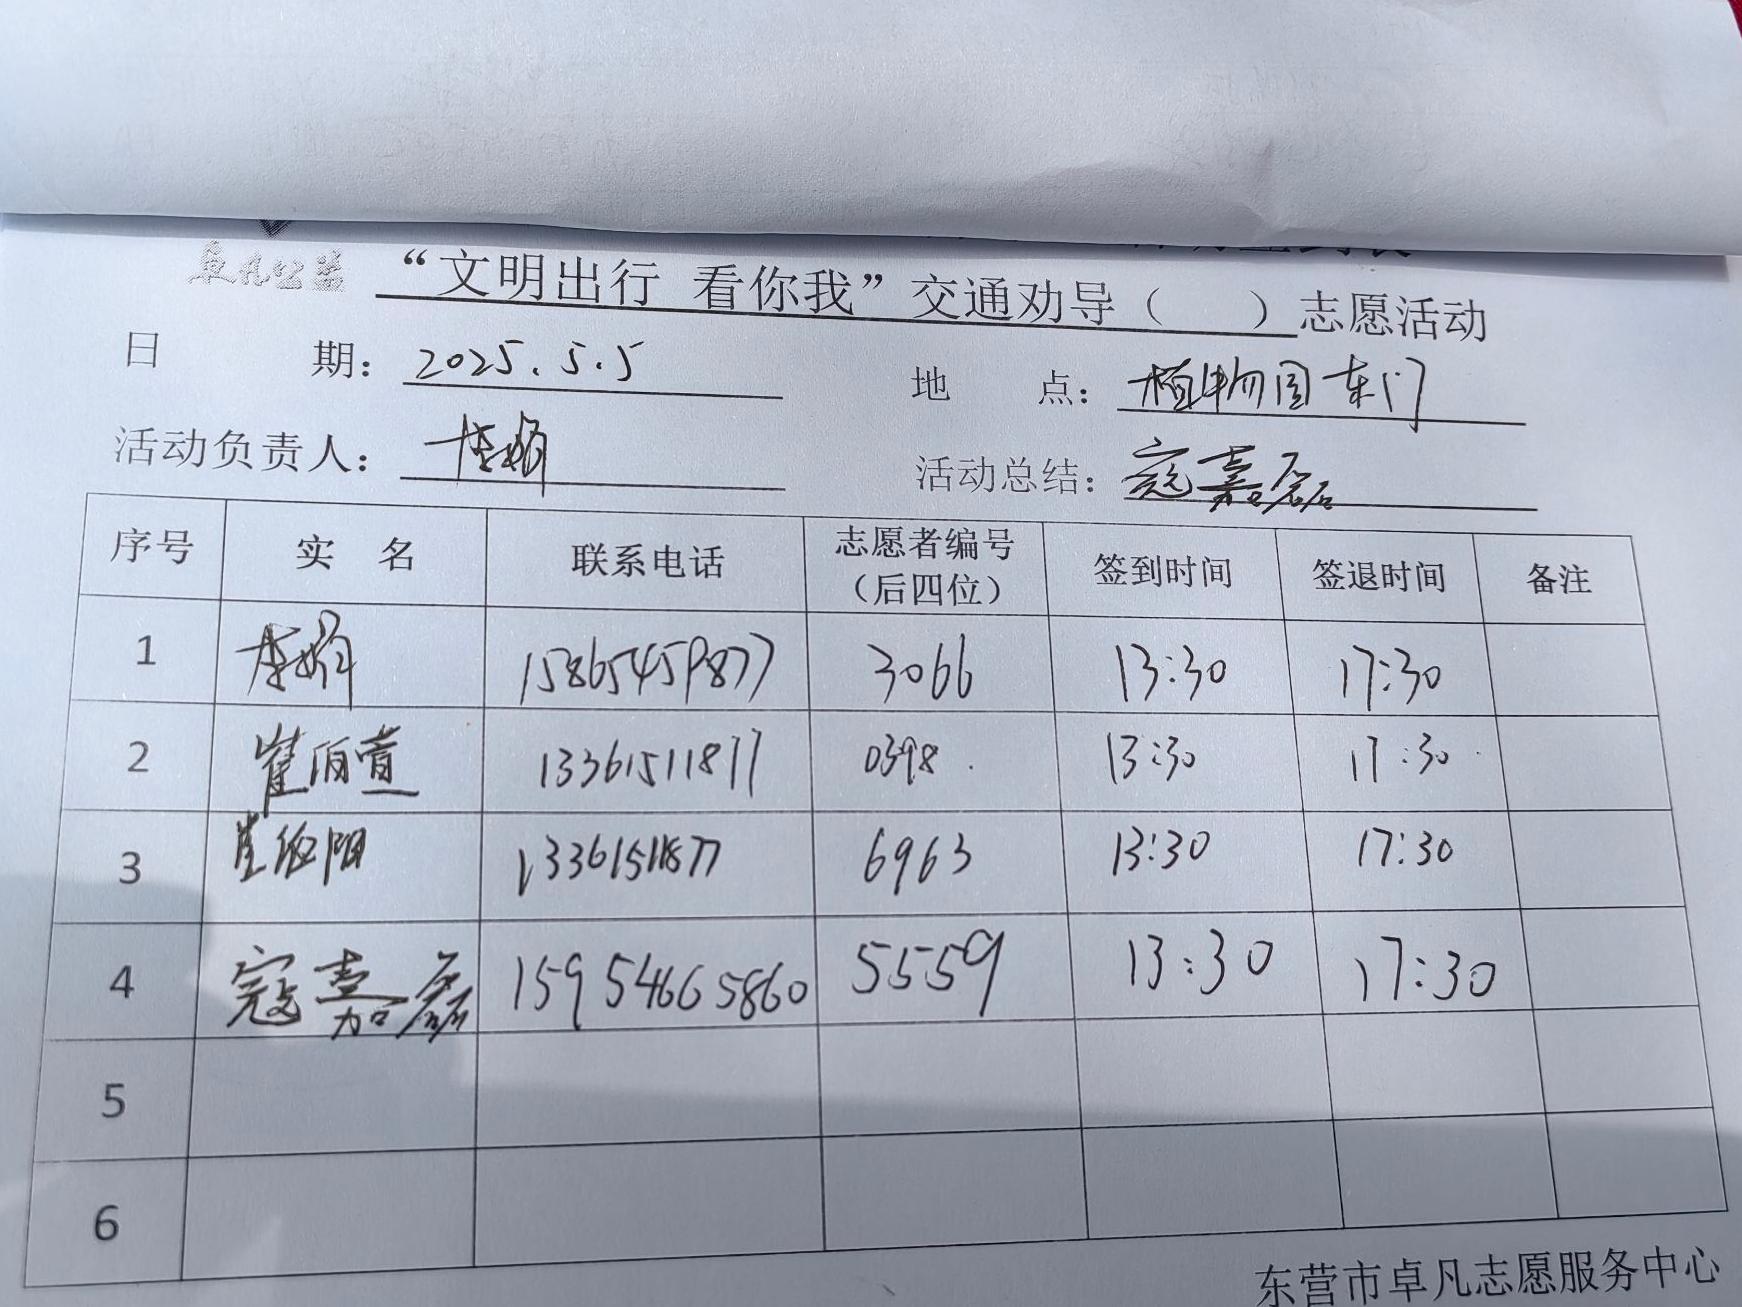 卓凡公益
“文明出行 看你我”交通劝导（ ）志愿活动
日 期：2025.5.5 地 点：植物园东门
活动负责人：李娟 活动总结：寇嘉磊
序号 实 名 联系电话 志愿者编号（后四位） 签到时间 签退时间 备注
1 李娟 15865459877 3066 13:30 17:30
2 崔萱 13361511877 0398 13:30 17:30
3 崔阳 13361511877 6963 13:30 17:30
4 寇嘉磊 15954665860 5559 13:30 17:30
5
6
东营市卓凡志愿服务中心